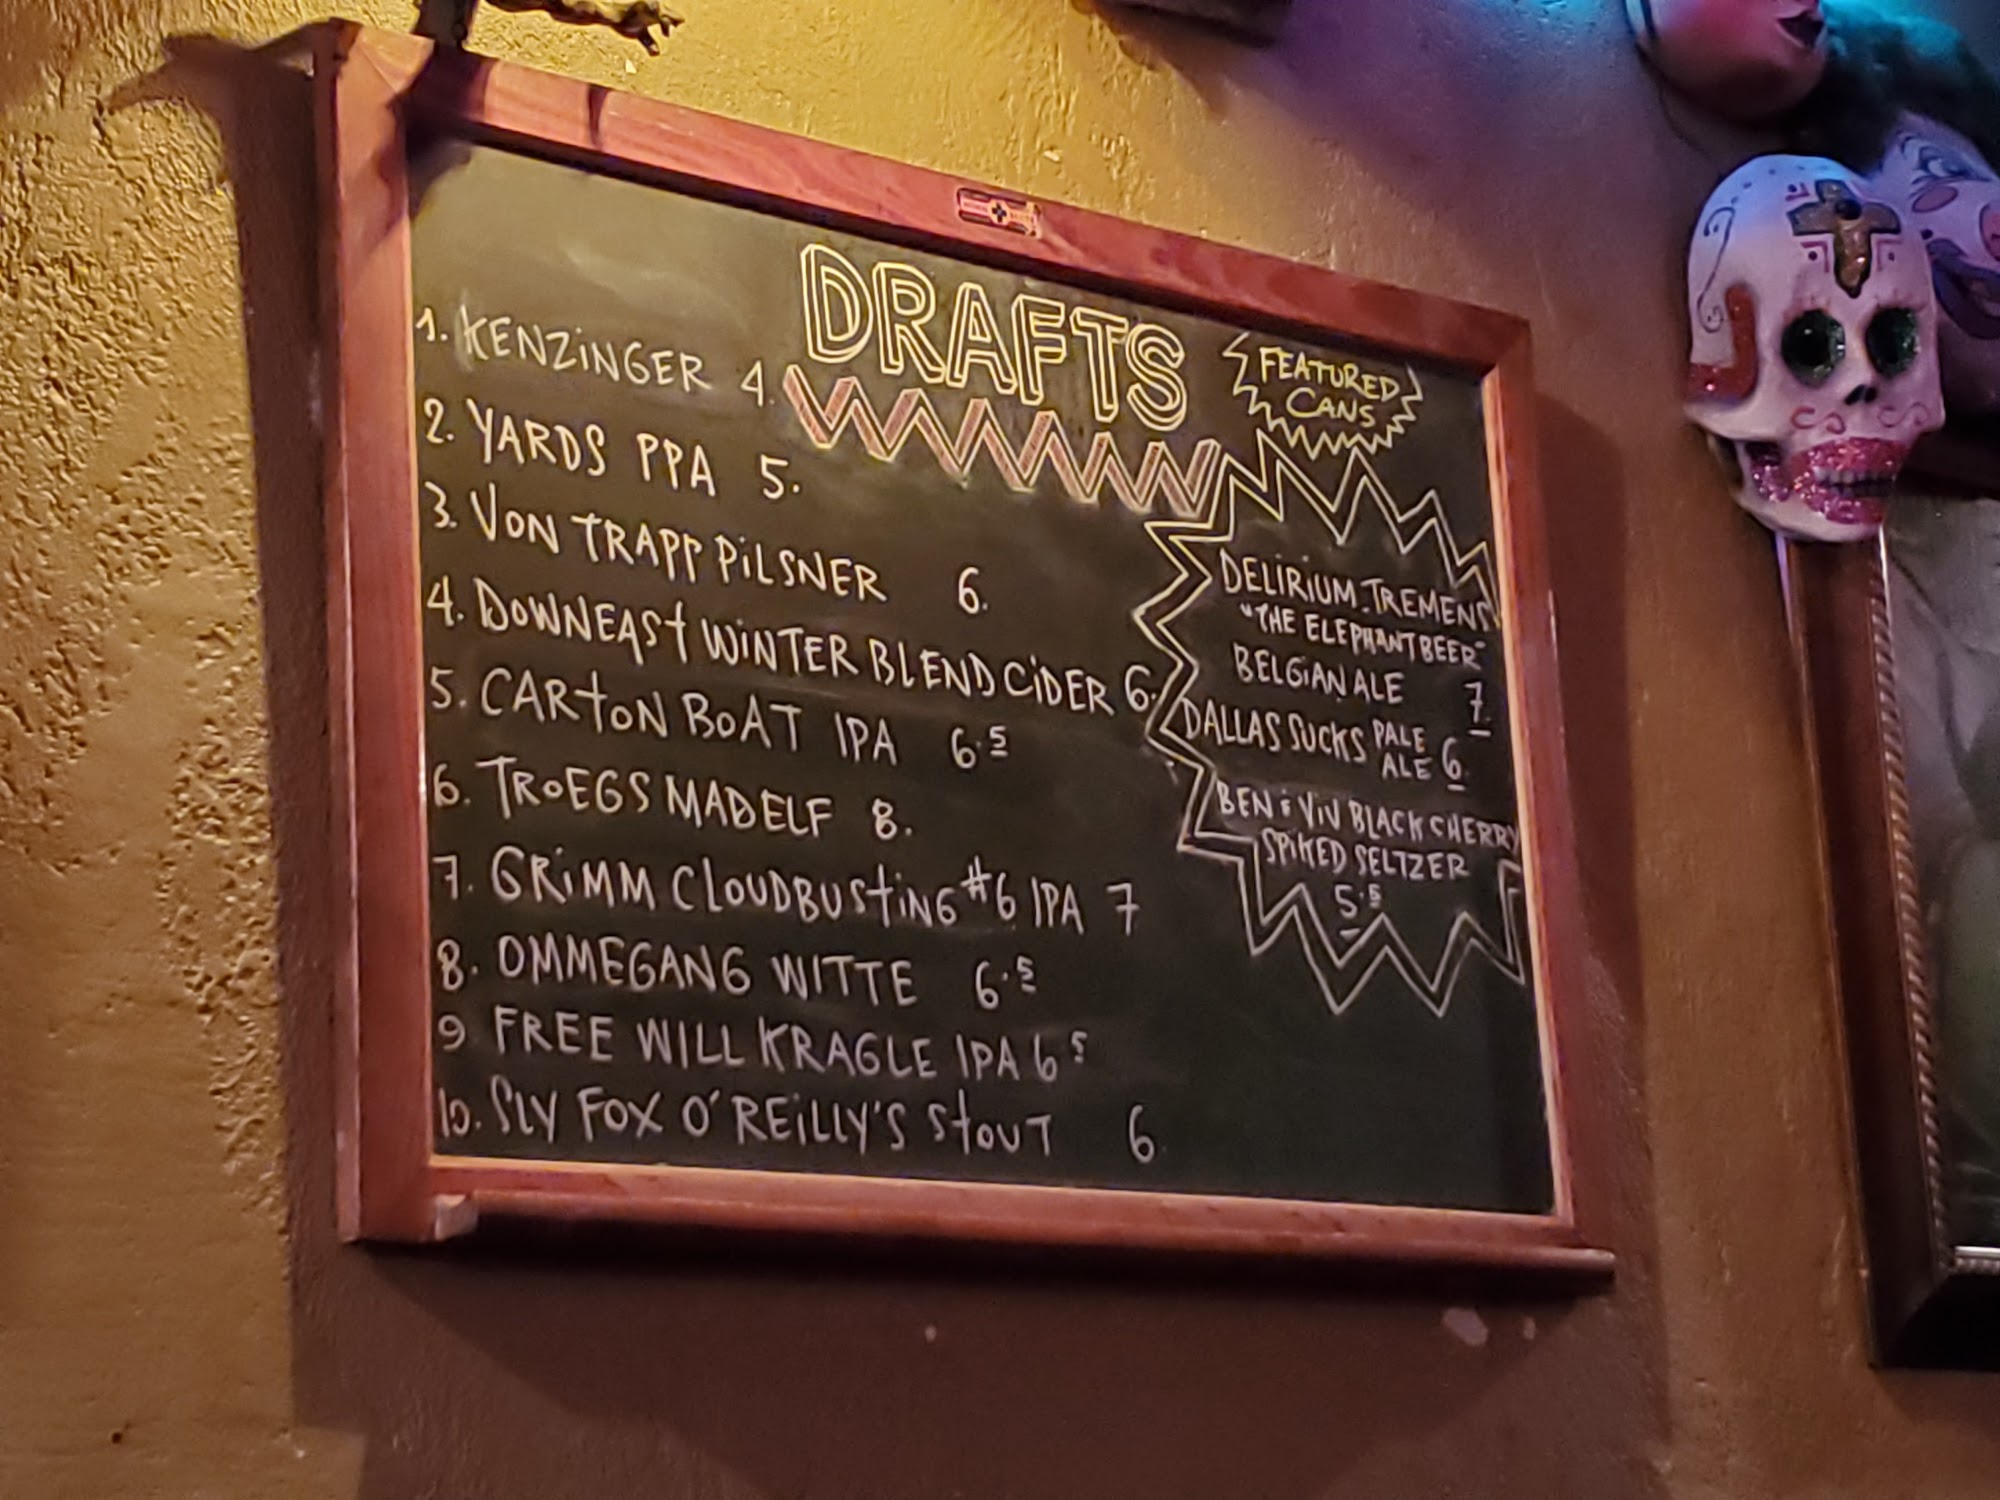 DRAFTS
1. KENZINGER 4.
2. YARDS PPA 5.
3. VON TRAPP PILSNER 6.
4. DOWNEAST WINTER BLEND CIDER 6.
5. CARTON BOAT IPA 6.5
6. TROEGS MAD ELF 8.
7. GRIMM CLOUDBUSTING #6 IPA 7
8. OMMEGANG WITTE 6.5
9 FREE WILL KRAGLE IPA 6 5
10. SLY FOX O'REILLY'S STOUT 6.
FEATURED
CANS
DELIRIUM TREMENS
"THE ELEPHANT BEER"
BELGIAN ALE 7.
DALLAS SUCKS PALE ALE 6.
BEN & VIV BLACK CHERRY
SPIKED SELTZER
5.5